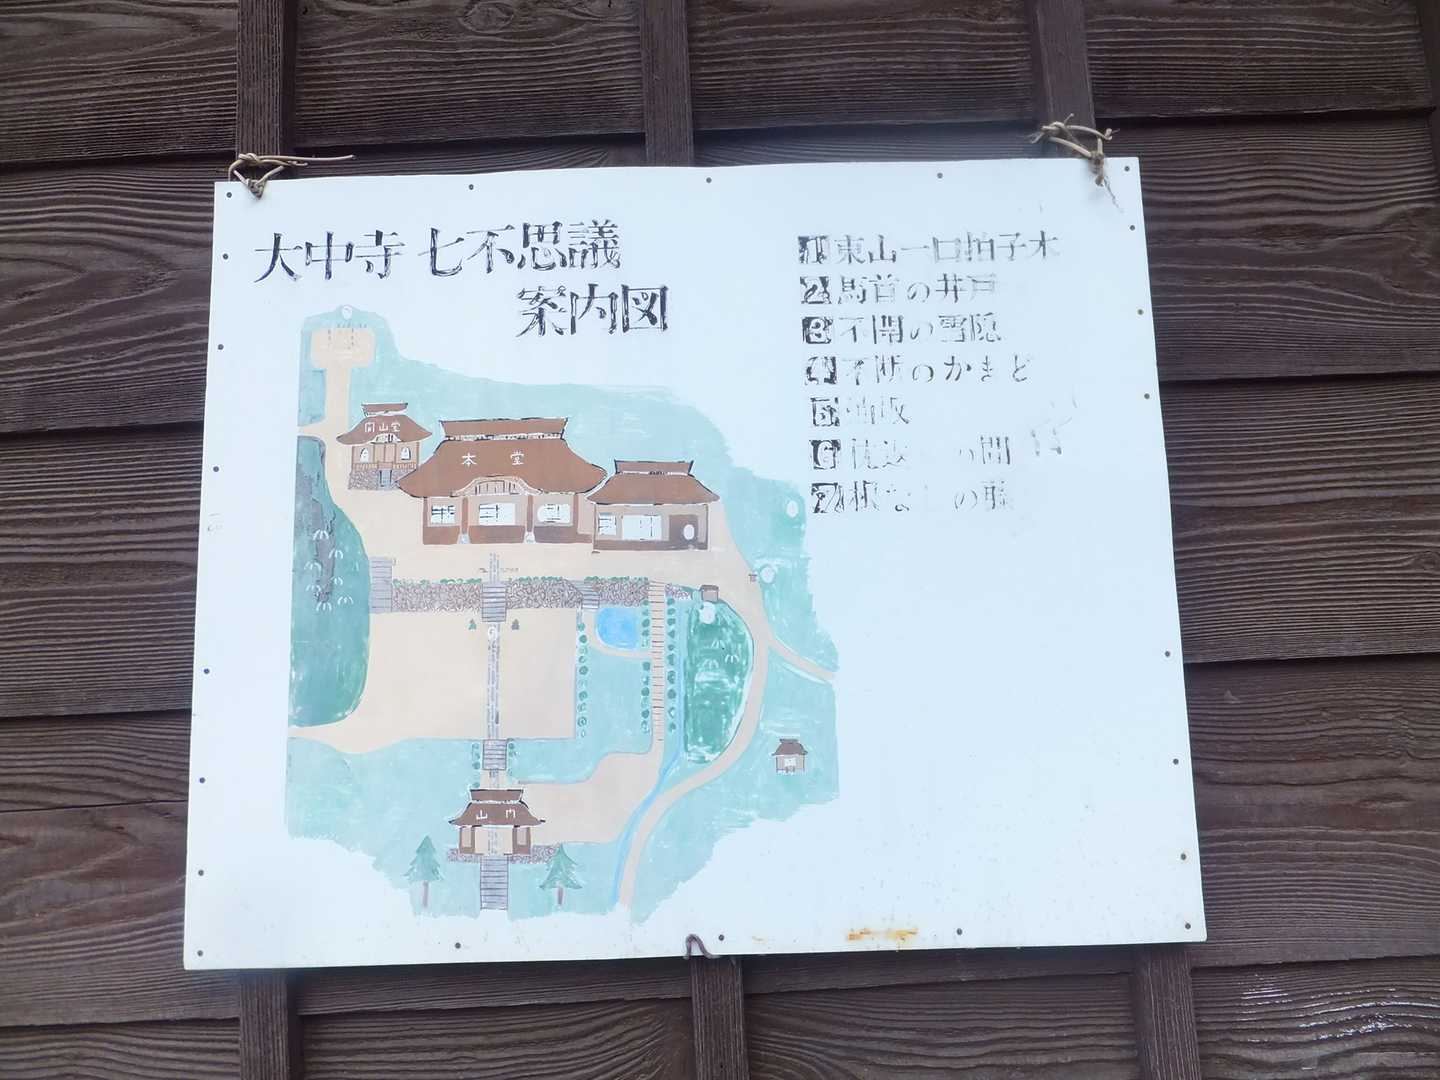 大中寺 七不思議
案内図
1 東山一口拍子木
2 馬首の井戸
3 不開の雪隠
4 不断のかまど
5 油坂
6 枕返 の間
7 根なしの藤
開山堂
本堂
山門